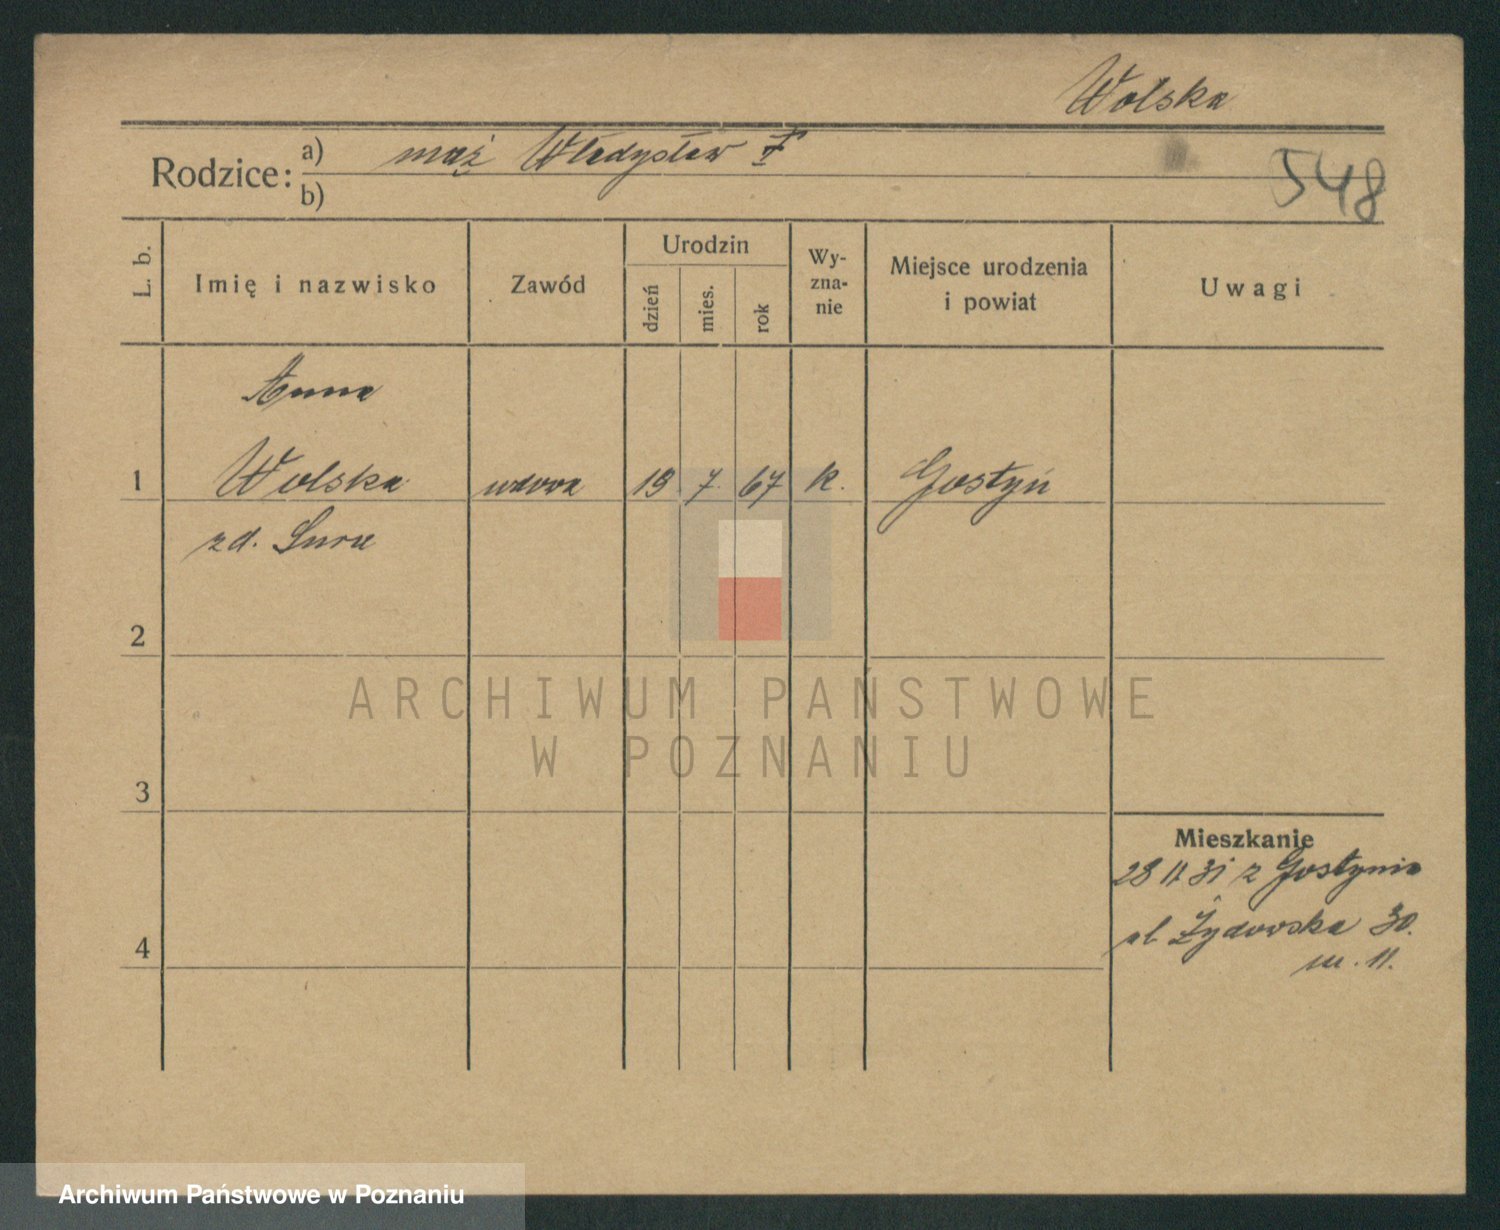 Wolska
Rodzice: a) mąż Władysław †
b)
548
L. b.
Imię i nazwisko
Zawód
Urodzin
dzień
mies.
rok
Wy-
zna-
nie
Miejsce urodzenia
i powiat
Uwagi
Anna
1 Wolska wdowa 19 7 67 k. Gostyń
zd.
2
3
4
Mieszkanie
28 11 31 z Gostynia
ul. Żydowska 30.
m. 11.
ARCHIWUM PAŃSTWOWE
W POZNANIU
Archiwum Państwowe w Poznaniu